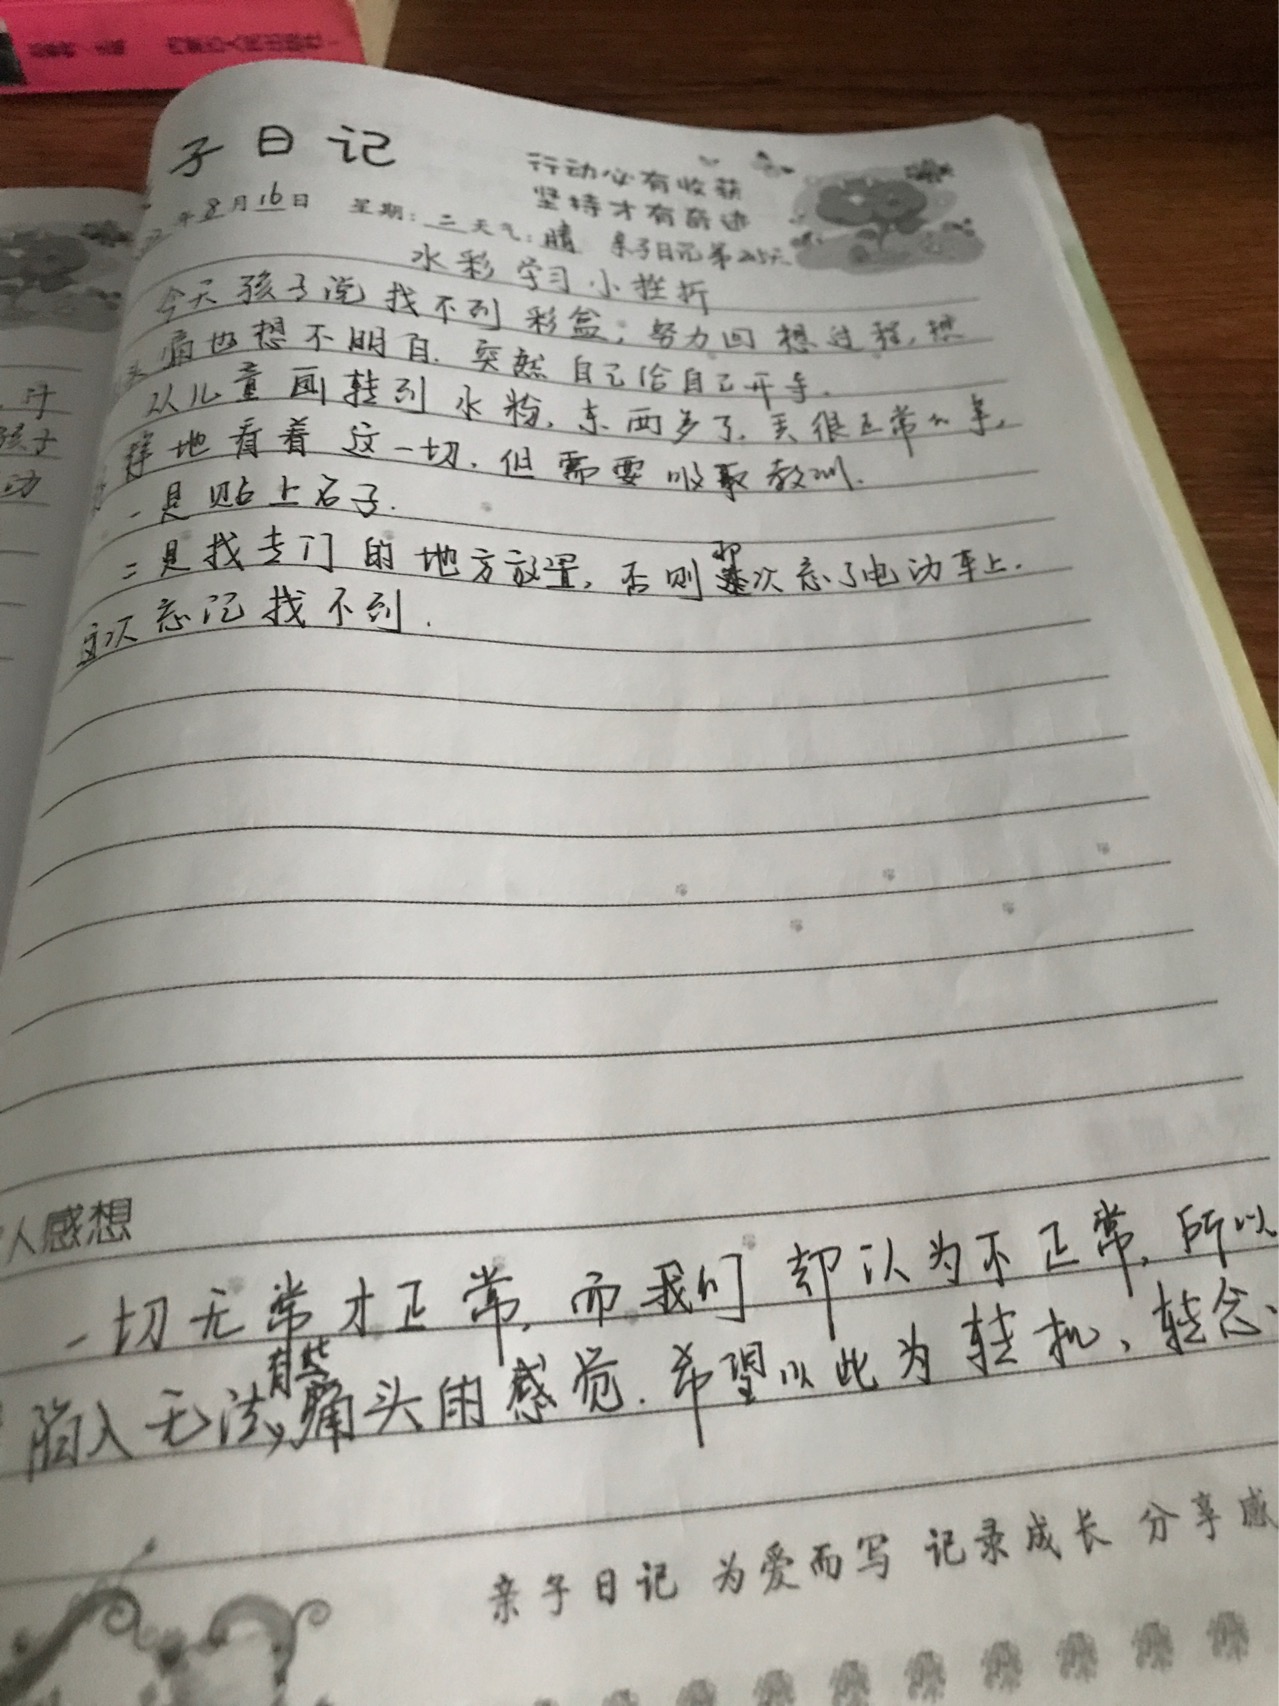 子日记
行动必有收获
坚持才有奇迹
年8月16日 星期:二 天气:晴 亲子日记第
水彩学习小挫折
今天孩子说找不到彩盒,努力回想过程,想
头痛也想不明白.突然自己给自己开
从儿童画转到水粉,东西多了,丢很正常的事,
静地看着这一切.但需要吸取教训.
一是贴上名字.
二是找专门的地方放置,否则那次忘了电动车上.
这次忘记找不到.
人感想
一切无常才正常,而我们却认为不正常,所以
陷入无法,有些痛头的感觉.希望以此为转机,转念
亲子日记 为爱而写 记录成长 分享感
计
孩子
动